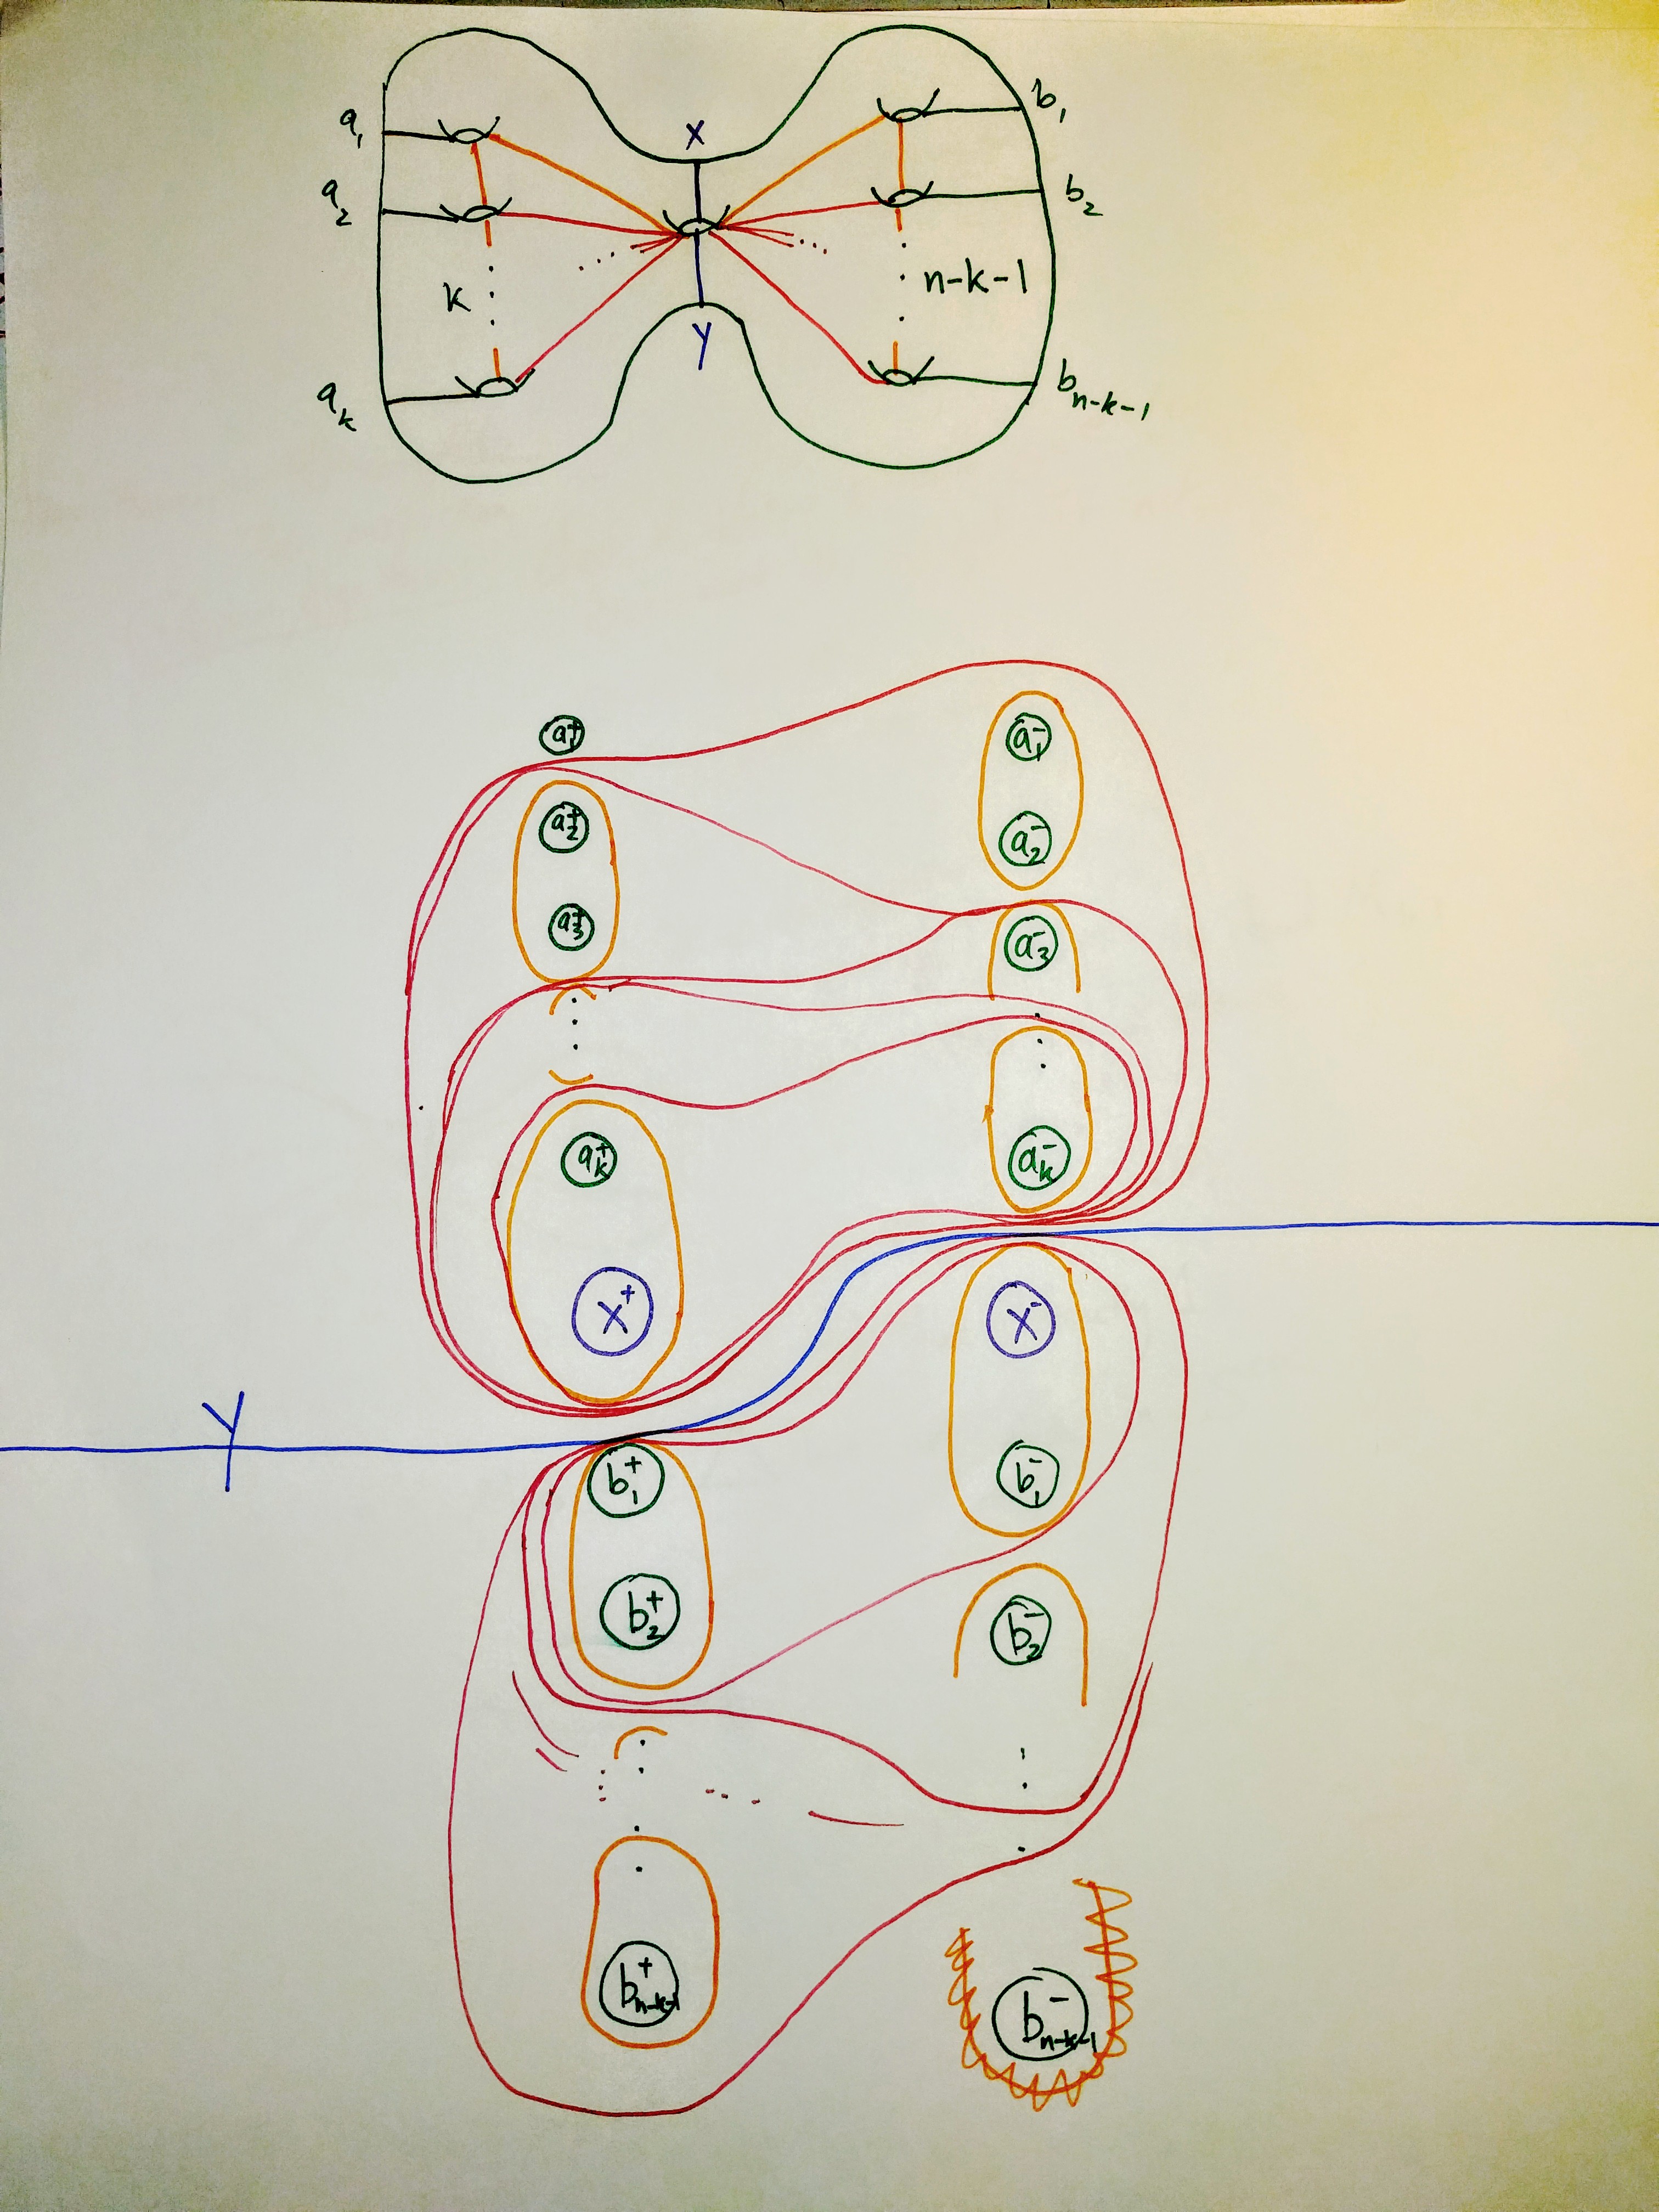 a₁
a₂
a_k
X
Y
k
n-k-1
b₁
b₂
b_{n-k-1}
a₁⁺
a₁⁻
a₂⁺
a₂⁻
a₃⁺
a₃⁻
a_k⁺
a_k⁻
X⁺
X⁻
Y
b₁⁺
b₁⁻
b₂⁺
b₂⁻
b⁺_{n-k-1}
b⁻_{n-k-1}